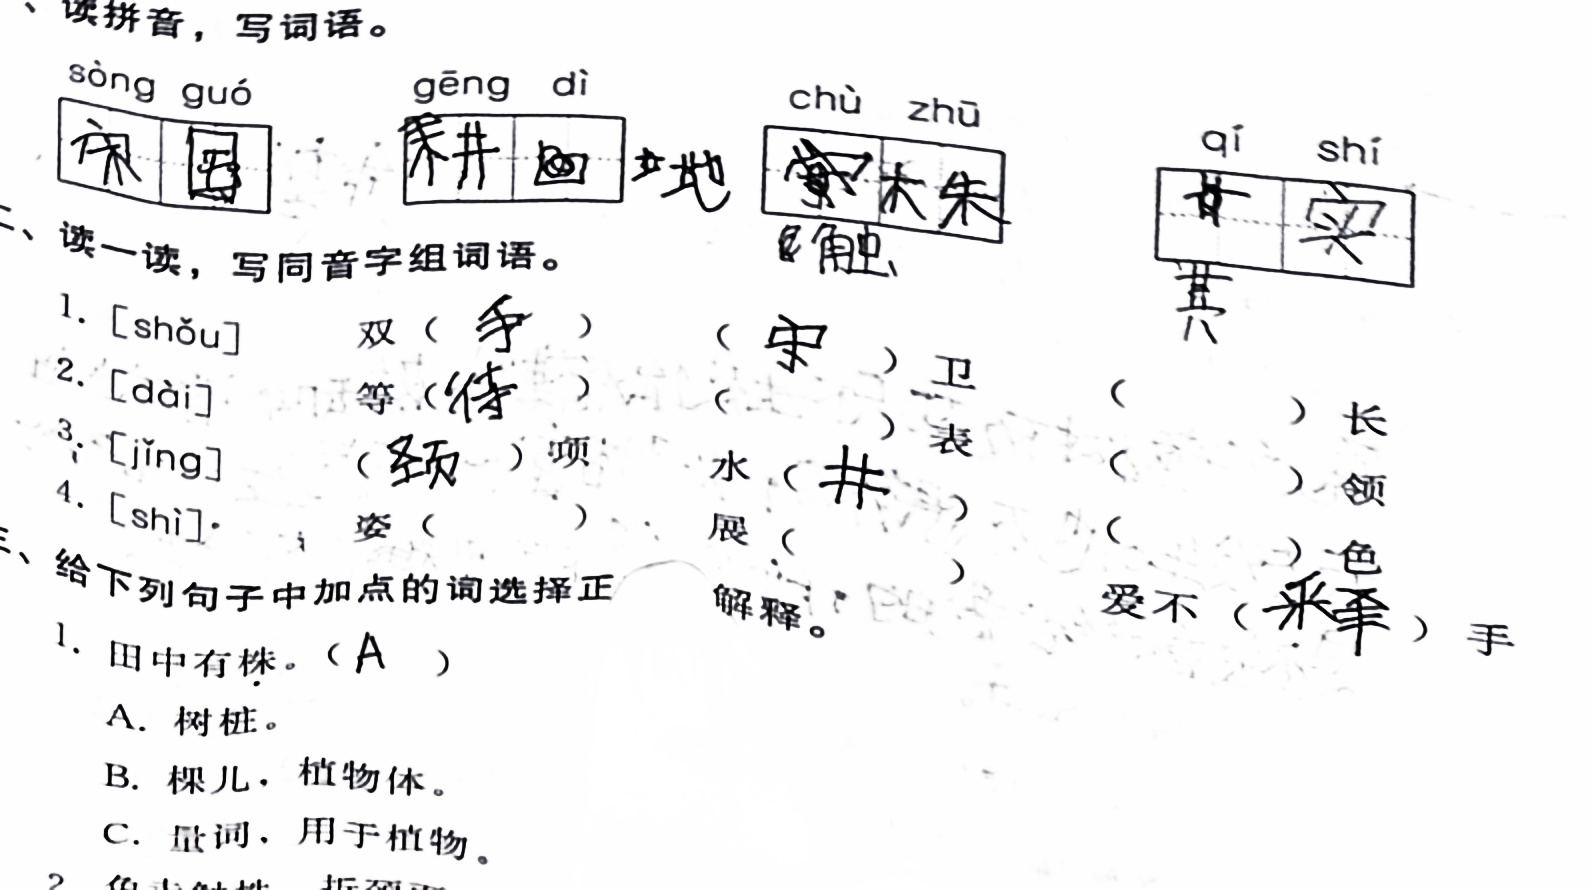 、读拼音，写词语。
sòng guó gēng dì chù zhū qí shí
宋 国 耕 地 株 实
触
其
二、读一读，写同音字组词语。
1. [shǒu] 双（手） （守）卫 （ ）长
2. [dài] 等（待） （ ）表 （ ）领
3. [jǐng] （颈）项 水（井） （ ）色
4. [shì] 姿（ ） 展（ ） 爱不（ ）手
三、给下列句子中加点的词选择正 解释。
1. 田中有株。（A）
A. 树桩。
B. 棵儿，植物体。
C. 量词，用于植物。
2